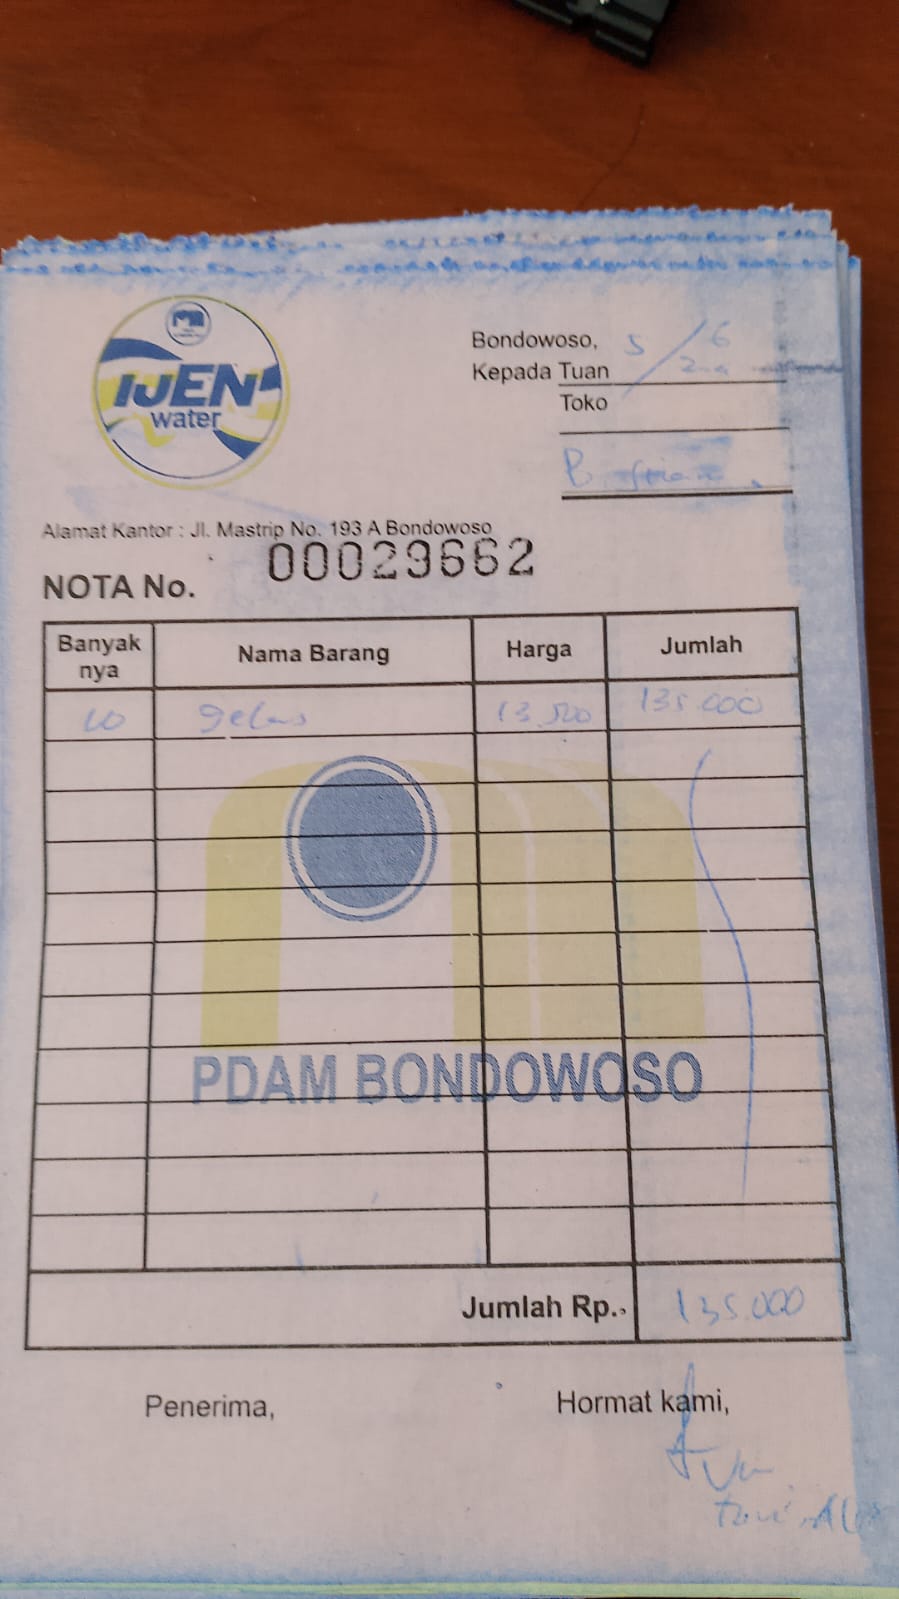 IJEN
water
Bondowoso, 5/6
Kepada Tuan
Toko
Alamat Kantor : Jl. Mastrip No. 193 A Bondowoso
NOTA No. 00029662
Banyak nya Nama Barang Harga Jumlah
10 gelas 13.500 135.000
PDAM BONDOWOSO
Jumlah Rp. 135.000
Penerima, Hormat kami,